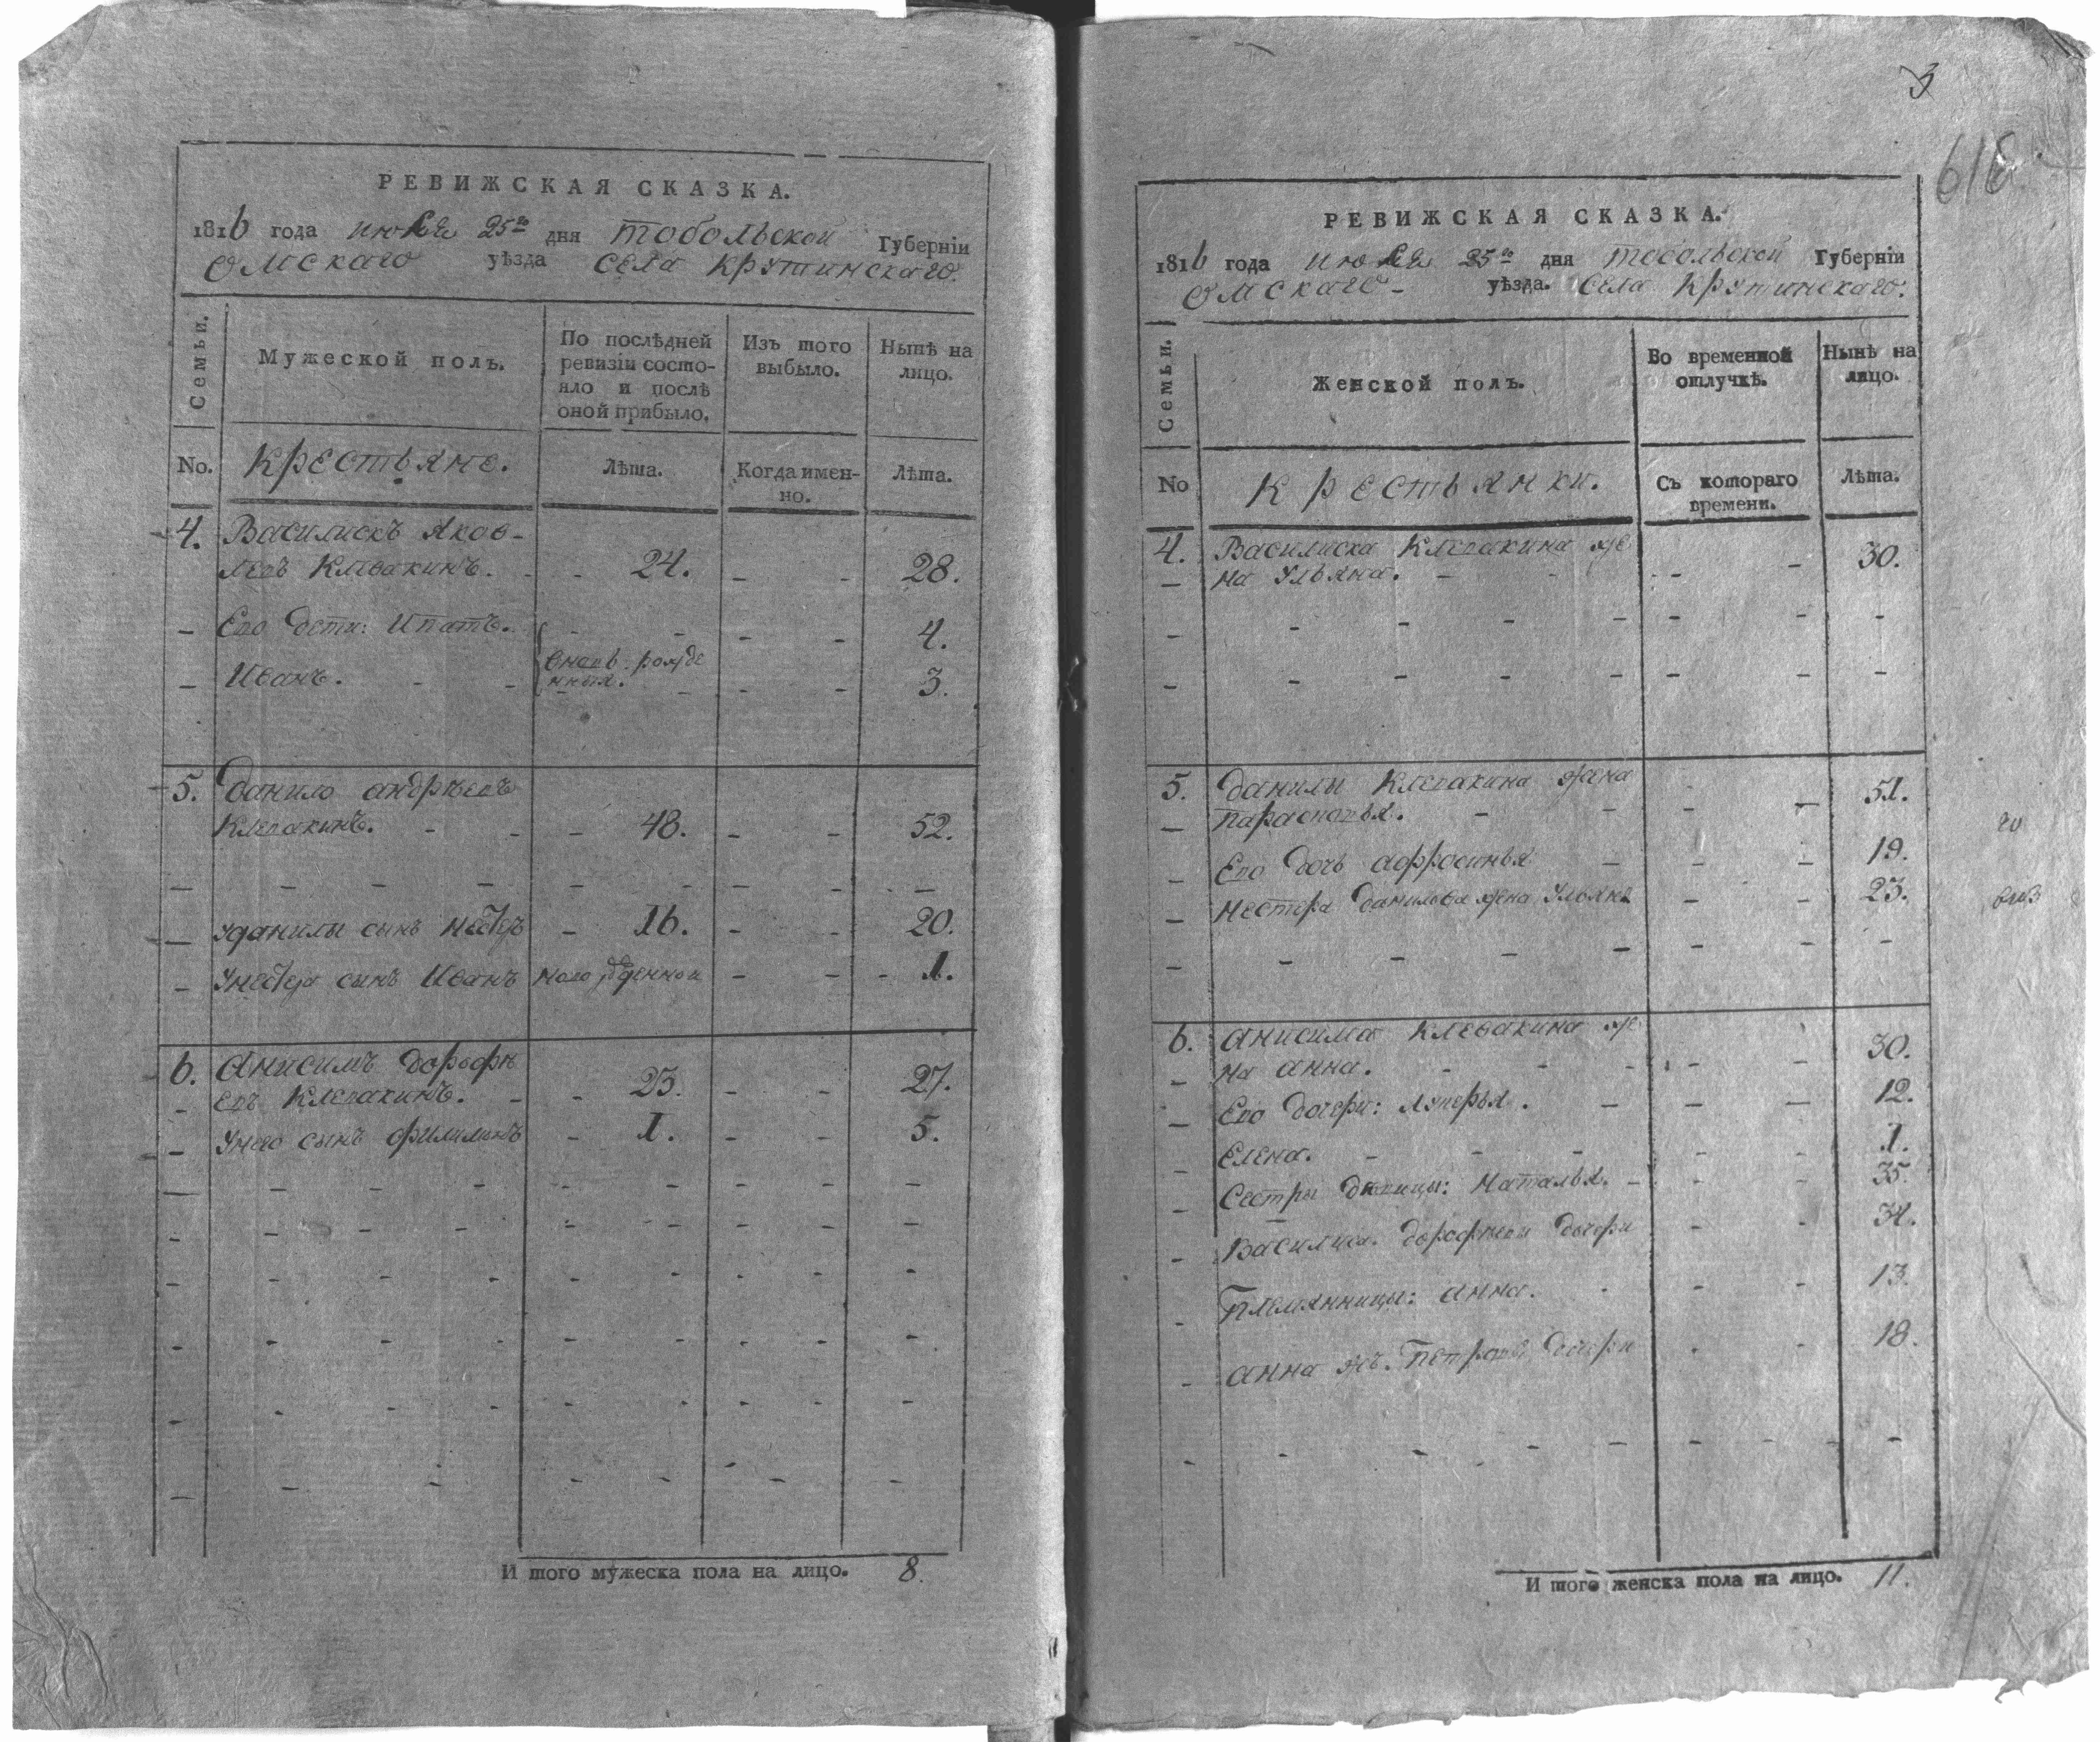 РЕВИЖСКАЯ СКАЗКА.
1816 года июля 25го дня тобольской Губернїи
омского уѣзда села крутинскаго.
Семьи.
Мужеской полъ.
По послѣдней ревизїи состояло и послѣ оной прибыло.
Изъ того выбыло.
Нынѣ на лицо.
No. крестьяне. Лѣта. Когда именно. Лѣта.
4. Василискъ яков-
левъ клевакинъ. - - 24. - - 28.
- Его дети: ипатъ. - - - - 4.
вновь рожде
- Иванъ. - - нныя. - - 3.
5. Данило андрѣевъ
клевакинъ. - - - 48. - - 52.
- - - - - - - - -
- уданилы сынъ несteръ - 16. - - 20.
- унестера сынъ Иванъ новорожденной - - - 1.
6. Анисимъ дорофѣ
- евъ клевакинъ. - - 23. - - 27.
- унего сынъ филимонъ - 1. - - 5.
И того мужеска пола на лицо. 8.
3
616
РЕВИЖСКАЯ СКАЗКА.
1816 года июля 25го дня тобольской Губернїи
омского - уѣзда. села крутинскаго.
Семьи.
Женской полъ.
Во временной отлучкѣ.
Нынѣ на лицо.
No крестьянки. Съ котораго времени. Лѣта.
4. Василиска клевакина же
- на ульяна. - - - - 30.
- - - - - - - -
- - - - - - - -
5. Данилы клевакина жена
- парасковья. - - - - 51.
- Его дочь афросинья - - - 19.
- нестера данилова жена ульяна - - 23.
- - - - - - - -
6. анисима клевакина же
- на анна. - - - - - 30.
- Его дочери: лукерья. - - - 12.
- Елена. - - - - - 1.
- Сестры девицы: наталья. - - - 35.
- василиса. дорофѣевы дочери - - 34.
- Племянницы: анна. - - - 13.
- анна жъ. петровы дочери - - 18.
- - - - - - - - -
И того женска пола на лицо. 11.